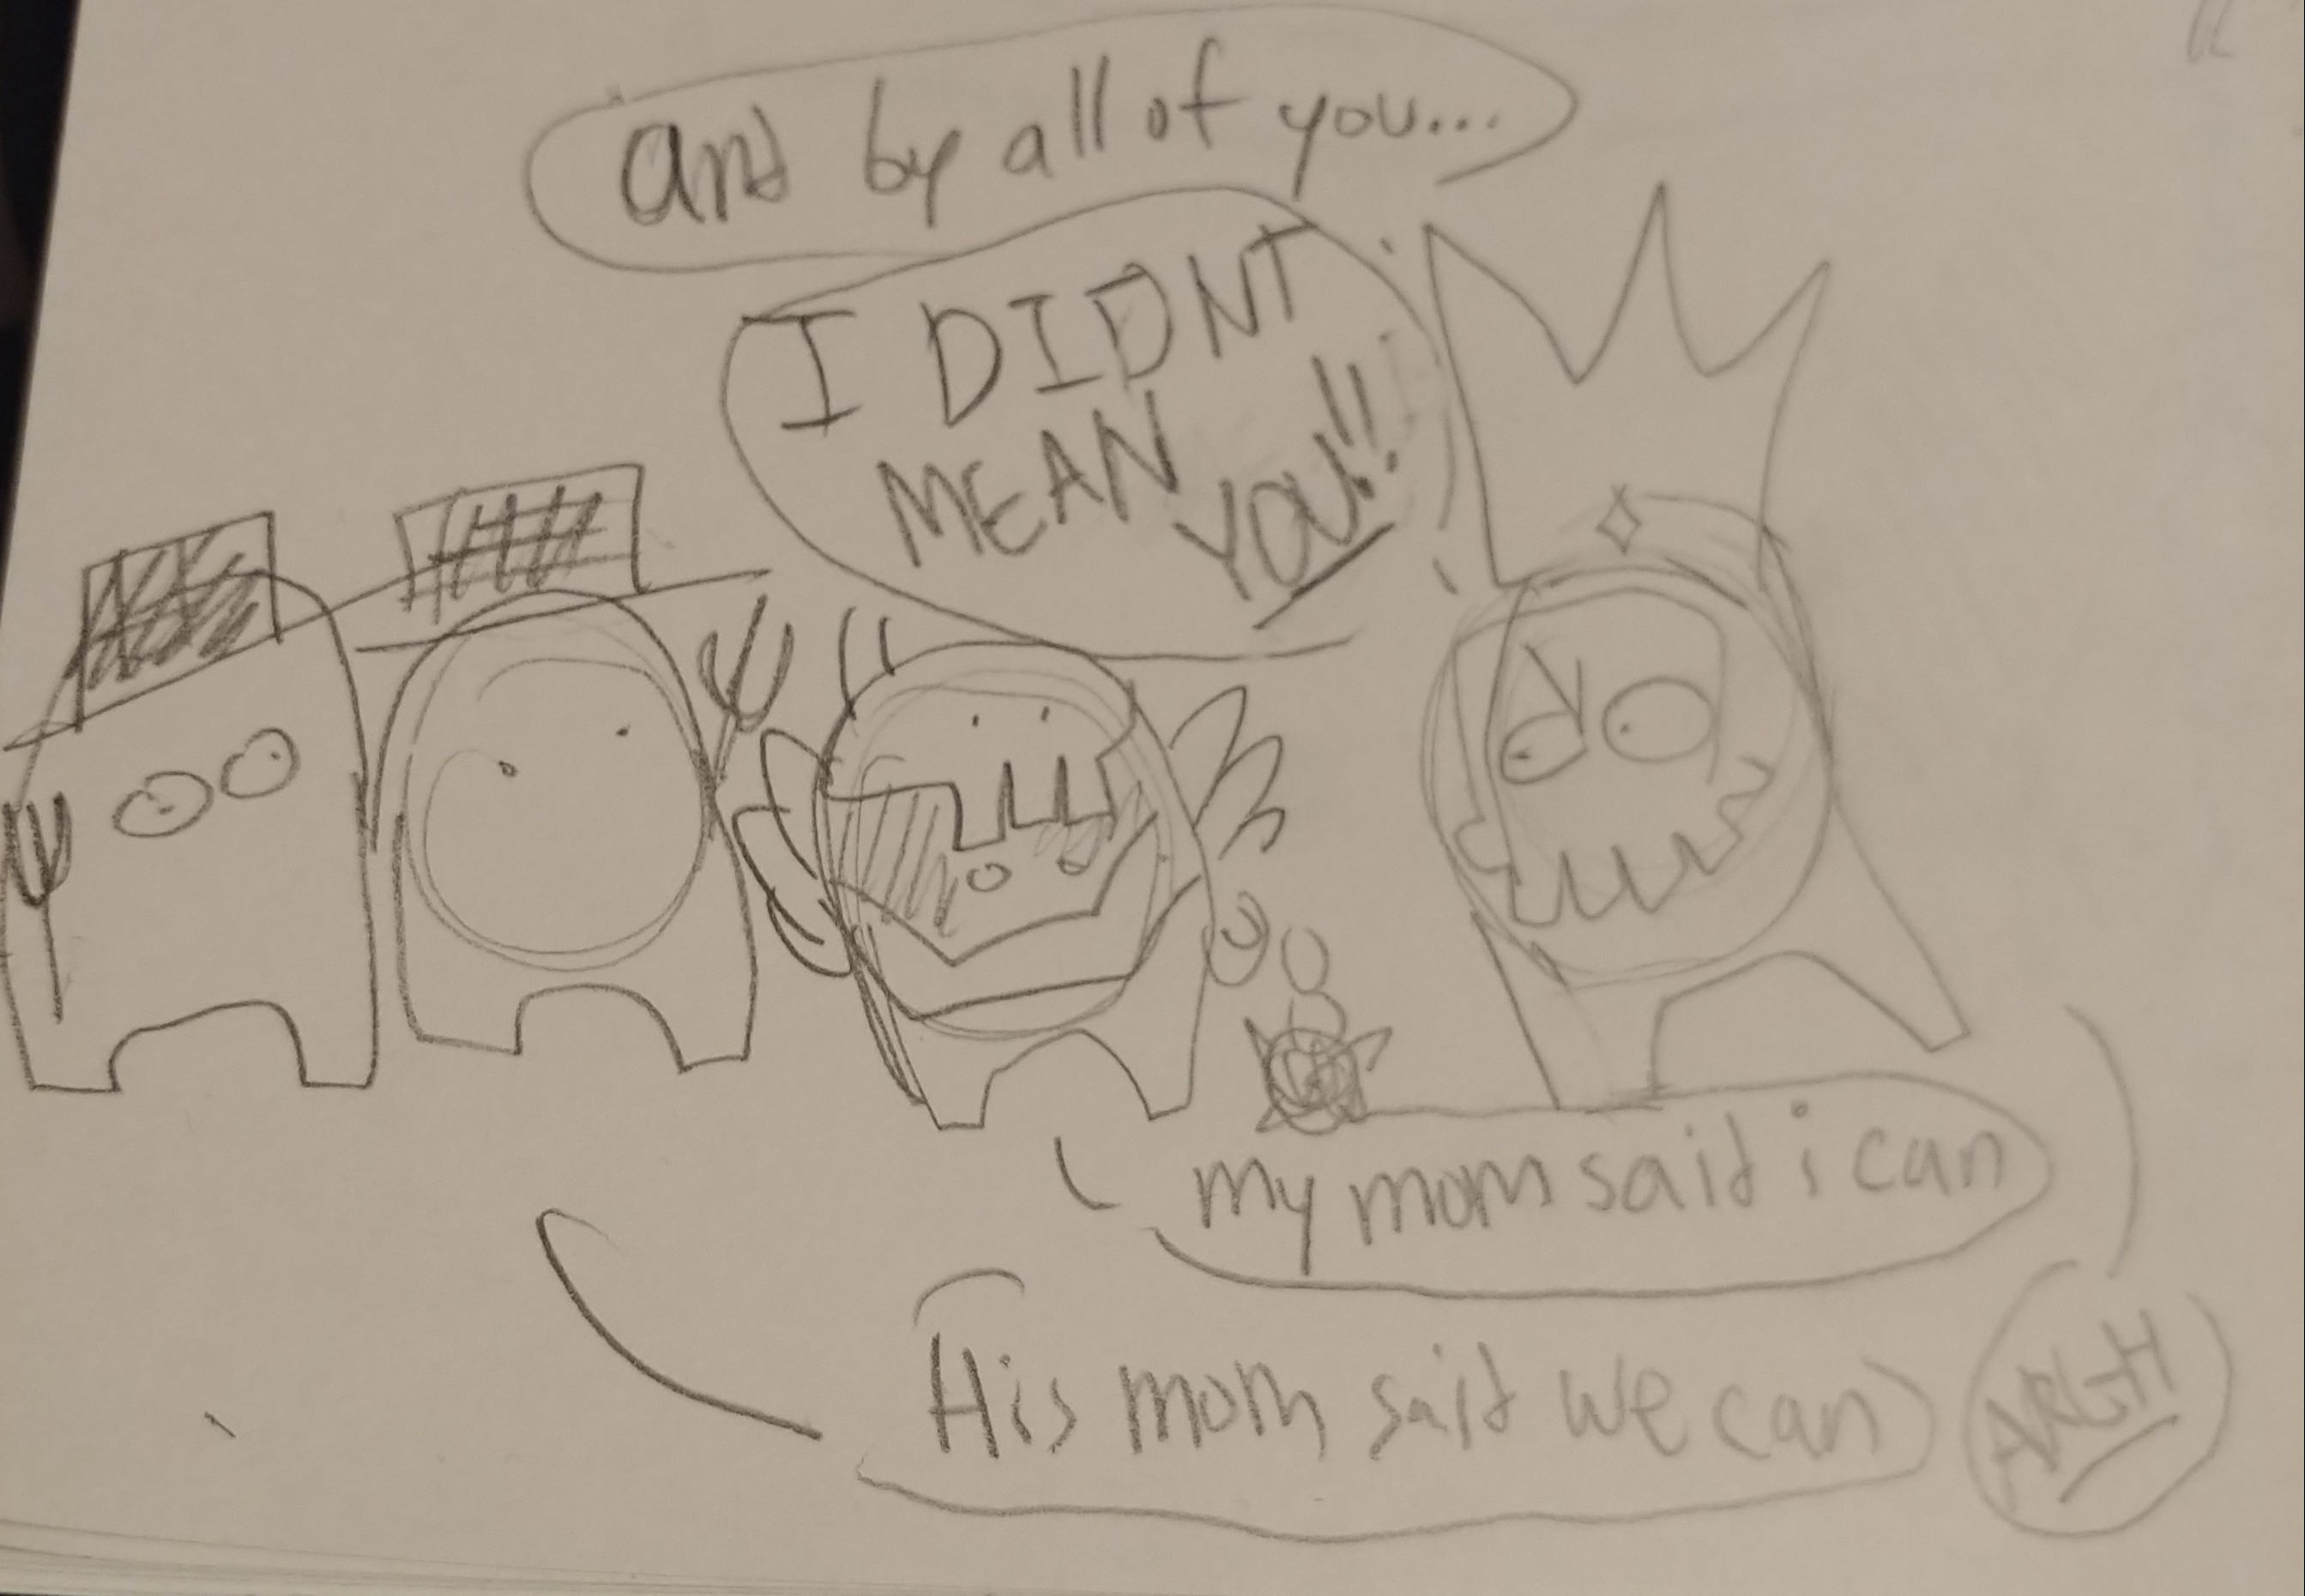 and by all of you...
I DIDNT
MEAN
YOU!!
my mom said i can
His mom said we can
ARGH